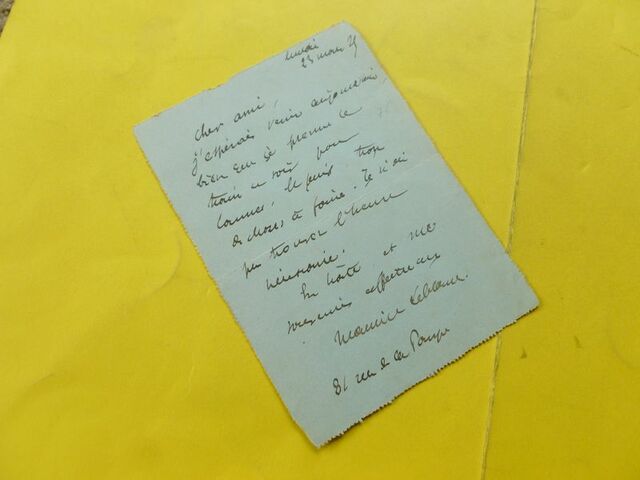 23 mars 25
Cher ami,
J'espérais venir aujourd'hui,
bien que je prenne le
train ce soir pour
Cannes. Et puis, trop
de choses à faire. Je n'ai
pu trouver l'heure
nécessaire.
En hâte et mes
souvenirs affectueux
Maurice Leblanc.
81 rue de la Pompe